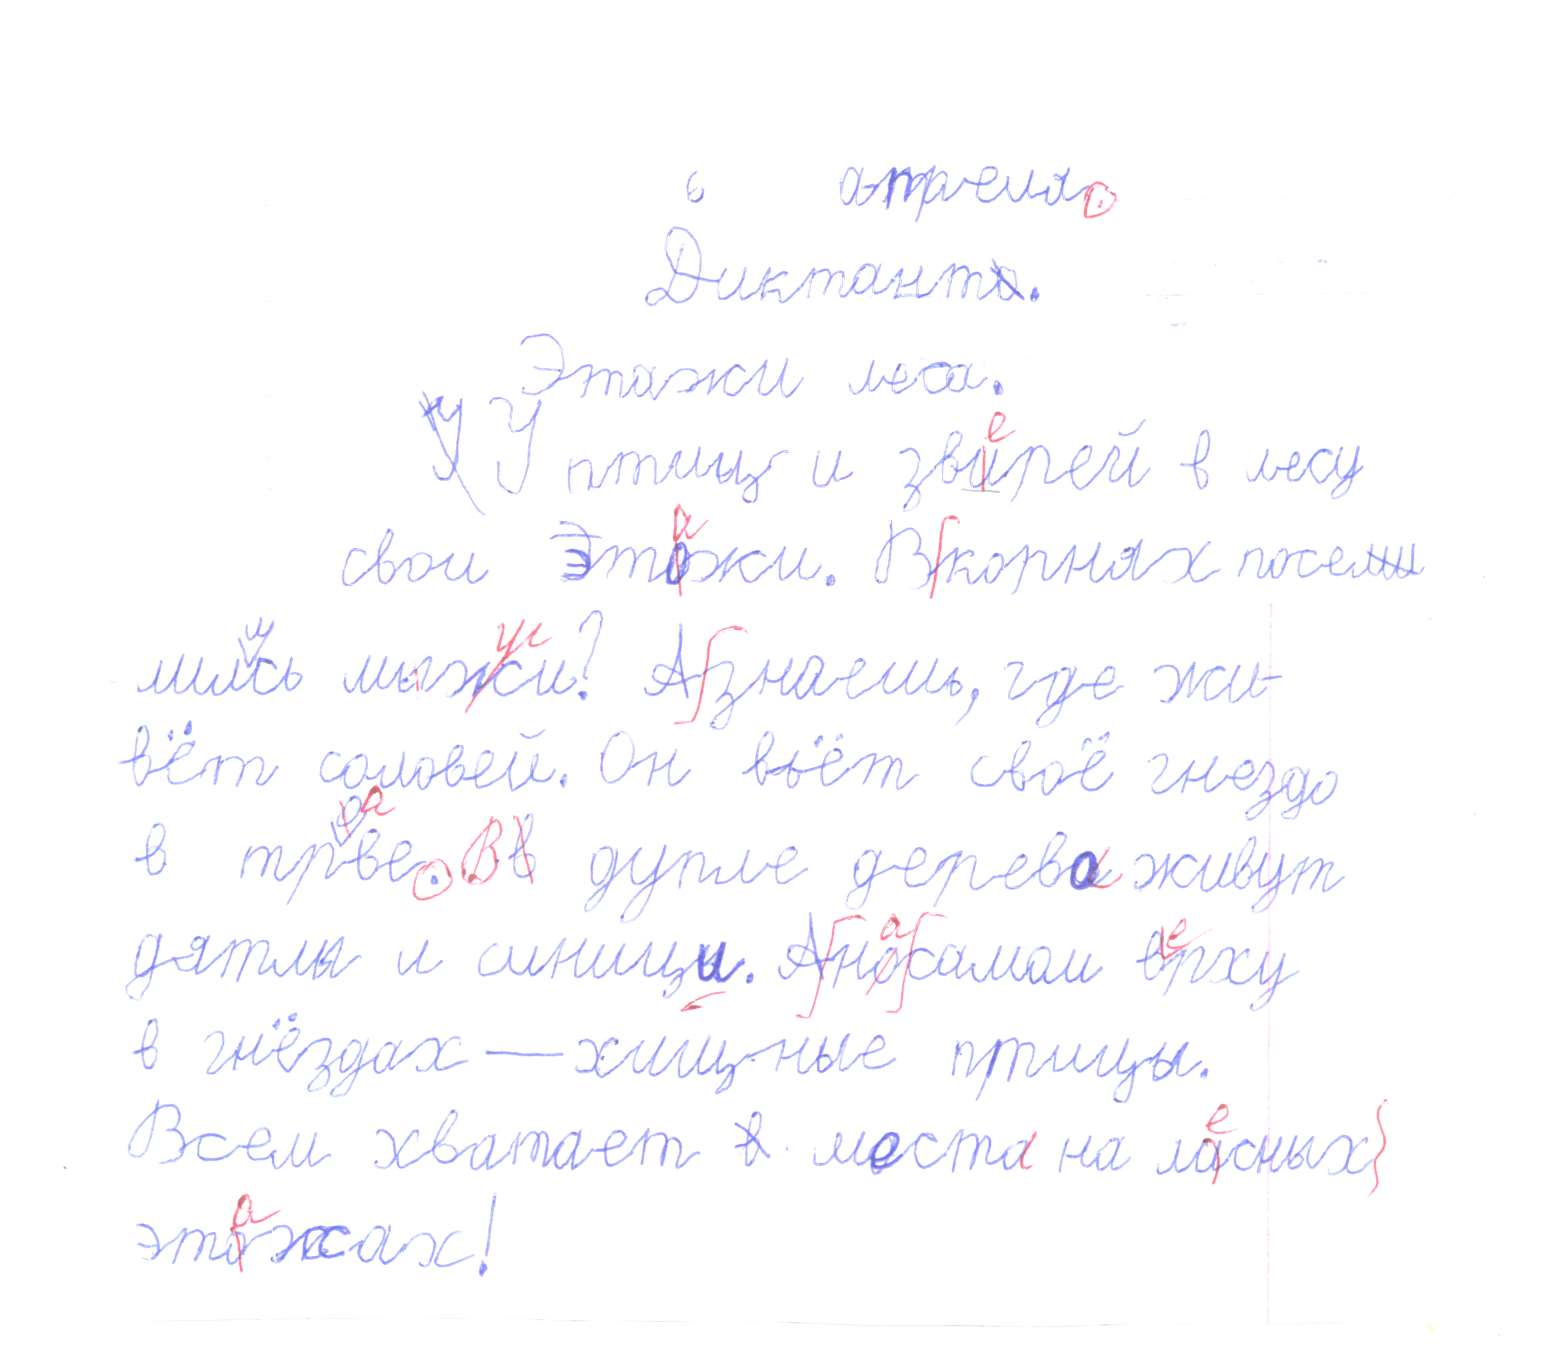 6 апреля.
Диктант.
Этажи леса.
У птиц и звирей в лесу
свои этожи. Вкорнях посели
лились мыжи? Азнаешь, где жи-
вёт соловей. Он вьёт своё гнездо
в трове. В дупле дерева живут
дятлы и синици. Аносамом врху
в гнёздах — хищные птицы.
Всем хватает места на ласных
этожах!